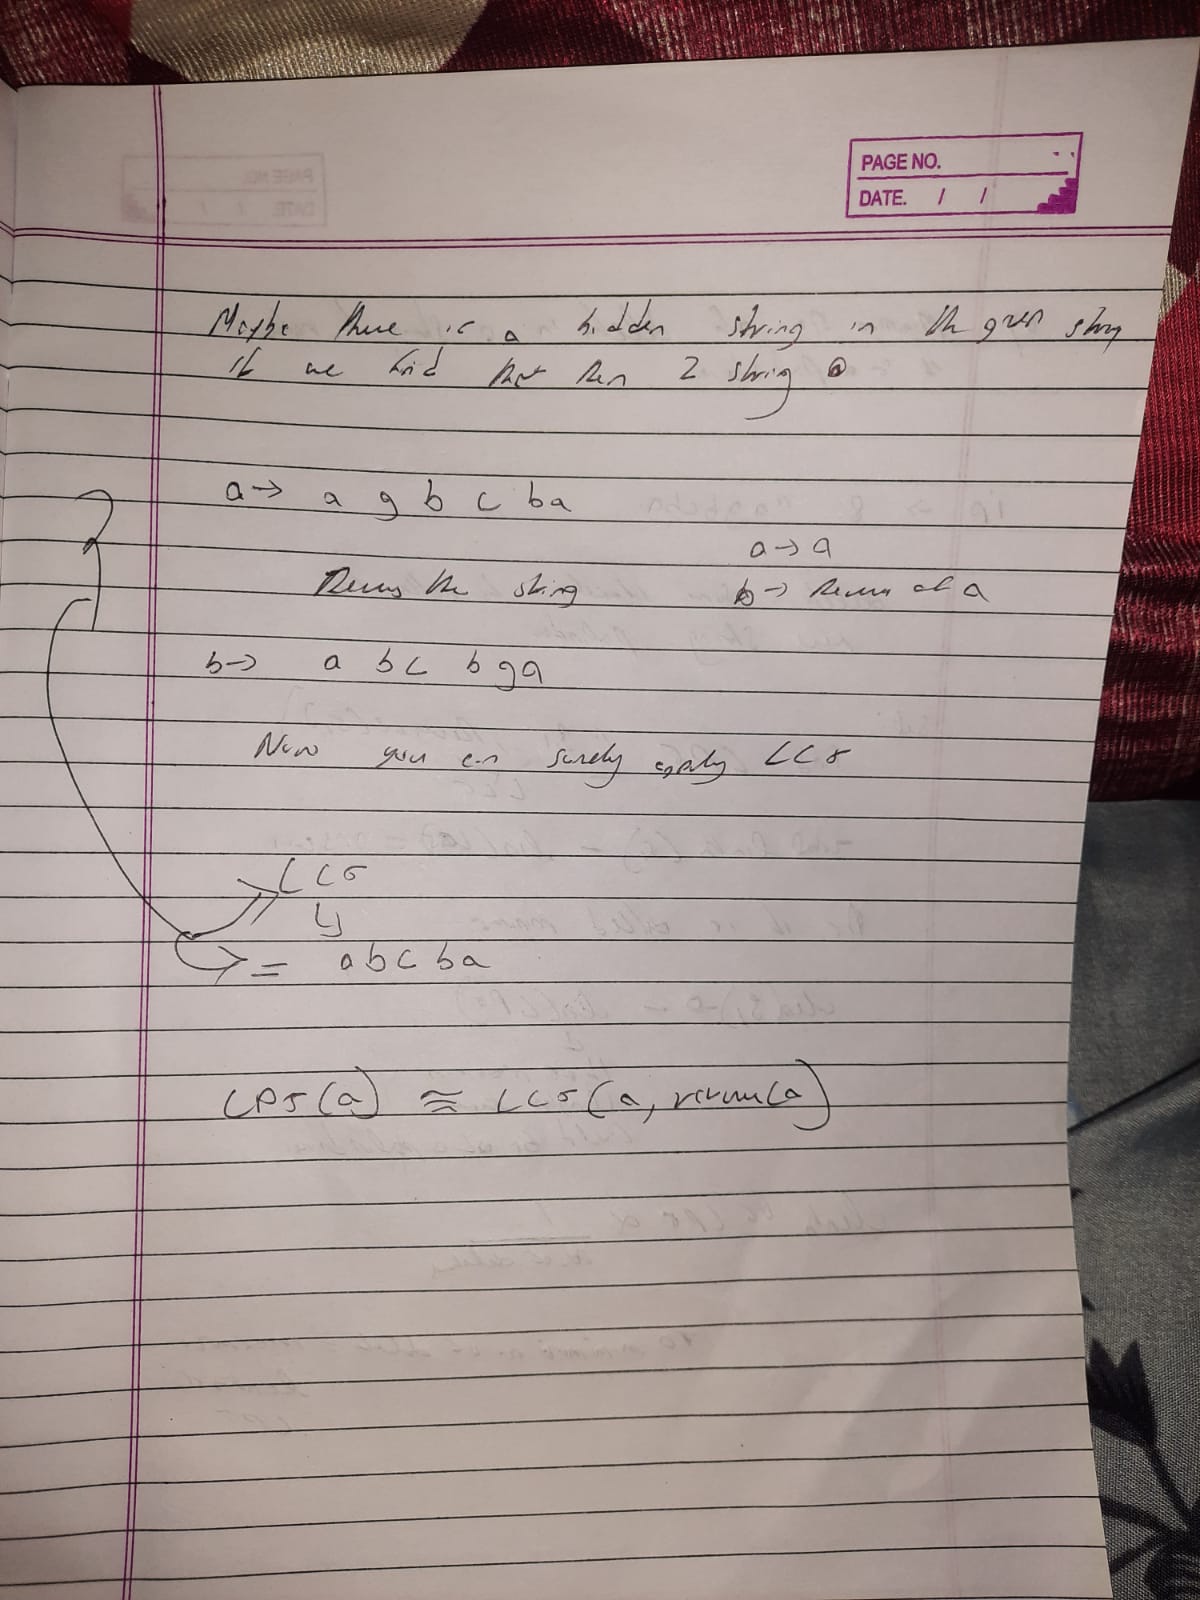 PAGE NO.
DATE. / /
Maybe there is a hidden string in the given string
If we find that then 2 string
a→ a g b c b a
a→a
Reverse the string
b→ Reverse of a
b→ a b c b g a
Now you can surely apply LCS
LCS
= a b c b a
LPS(a) ≈ LCS(a, reverse(a)